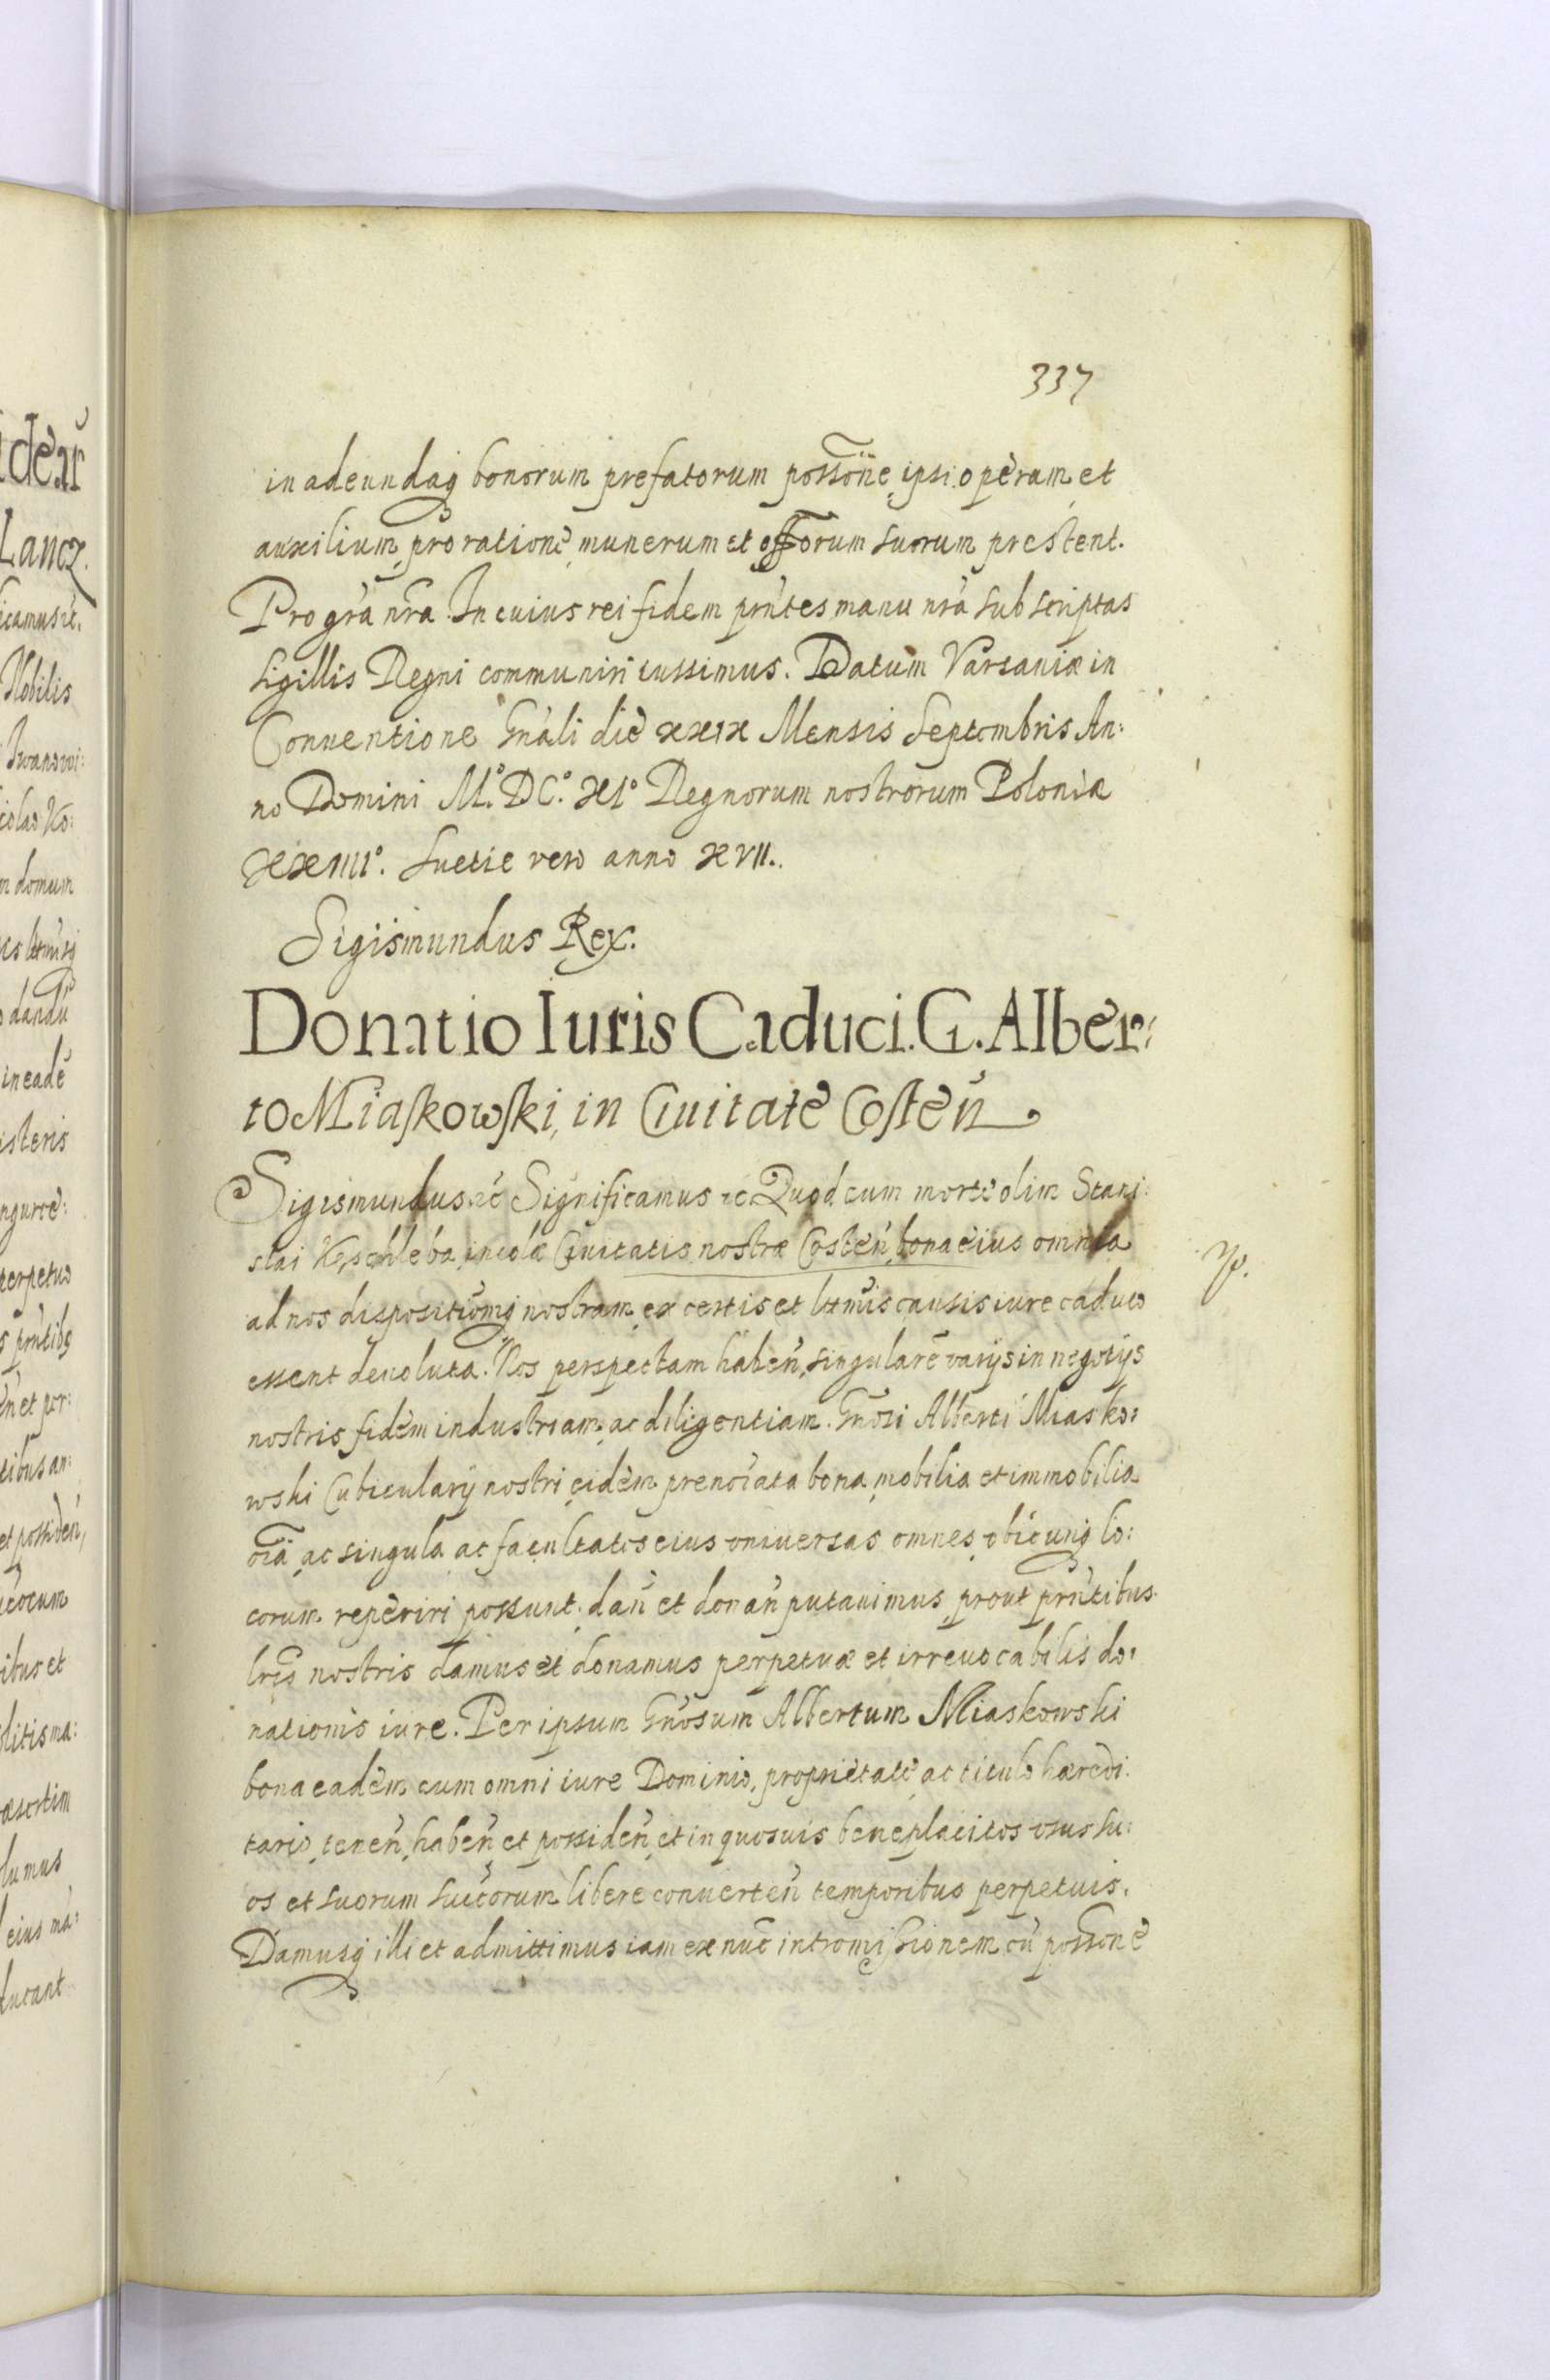 337
in adeundaq bonorum prefatorum possone ipsi operam et
auxilium pro ratione munerum et offorum suorum prestent.
Pro gra nra. In cuius rei fidem prntes manu nra subscriptas
sigillis Regni communiri iussimus. Datum Varsaviæ in
Conventione Gnali die xxix Mensis Septembris An:
no Domini M.° DC.° XI° Regnorum nostrorum Poloniæ
xxiiii°. Suetie vero anno xvii.
Sigismundus Rex.
Donatio Iuris Caduci. G. Alber:
to Miaskowski, in Civitate Costen
Sigismundus etc Significamus etc Quod cum morte olim Stani:
slai incolæ Civitatis nostræ Costen bona eius omnia
ad nos dispositionemq nostram ex certis et ltmis causis iure caduco
essent devoluta. Nos perspectam haben singulare varijs in negotijs
nostris fidem industriam ac diligentiam Gnosi Alberti Miasko:
wski Cubicularij nostri eidem prenotata bona mobilia et immobilia
oia ac singula ac facultates eius vniversas omnes vbicunq lo:
corum reperiri possunt dan et donan putavimus prout prntibus
lris nostris damus et donamus perpetuæ et irrevocabilis do:
nationis iure. Per ipsum Gnosum Albertum Miaskowski
bona eadem cum omni iure Dominio, proprietate ac titulo hæredi:
tario tenen haben et possiden et in quosvis beneplacitos vsus su:
os et suorum succorum libere converten temporibus perpetuis.
Damusq illi et admittimus iam ex nuc intromissionem cu possone